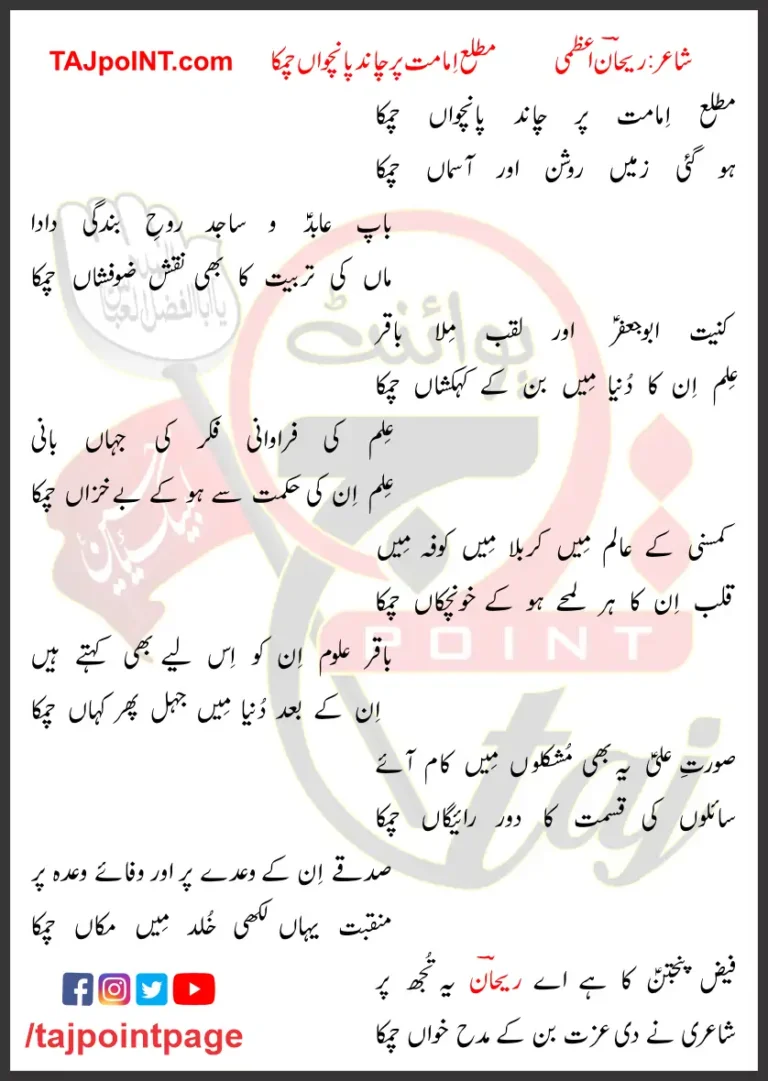 شاعر: ریحانؔ اعظمی مطلع اِمامت پر چاند پانچواں چمکا TAJpoINT.com
مطلع اِمامت پر چاند پانچواں چمکا
ہو گئی زمیں روشن اور آسماں چمکا
باپ عابدؑ و ساجد روحِ بندگی دادا
ماں کی تربیت کا بھی نقش ضوفشاں چمکا
کنیت ابوجعفرؑ اور لقب مِلا باقر
عِلم اِن کا دُنیا مِیں بن کے کہکشاں چمکا
عِلم کی فراوانی فکر کی جہاں بانی
عِلم اِن کی حکمت سے ہو کے بے خزاں چمکا
کمسنی کے عالم مِیں کربلا مِیں کوفہ مِیں
قلب اِن کا ہر لمحے ہو کے خونچکاں چمکا
باقر علوم اِن کو اِس لیے بھی کہتے ہیں
اِن کے بعد دُنیا مِیں جہل پھر کہاں چمکا
صورتِ علیؑ یہ بھی مُشکلوں مِیں کام آئے
سائلوں کی قسمت کا دور رائیگاں چمکا
صدقے اِن کے وعدے پر اور وفائے وعدہ پر
منقبت یہاں لکھی خُلد مِیں مکاں چمکا
فیض پنجتنؑ کا ہے اے ریحانؔ یہ تُجھ پر
شاعری نے دی عزت بن کے مدح خواں چمکا
/tajpointpage
پوائنٹ
یا ابا الفضل العباس
لبیک یا حسین
POINT
taj